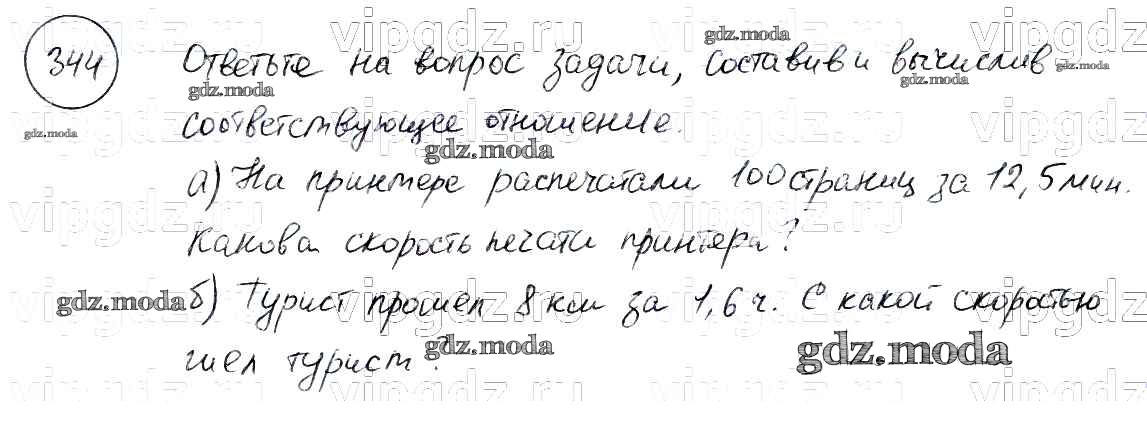 344 Ответьте на вопрос задачи, составив и вычислив
соответствующее отношение.
а) На принтере распечатали 100 страниц за 12,5 мин.
Какова скорость печати принтера?
б) Турист прошел 8 км за 1,6 ч. С какой скоростью
шел турист?